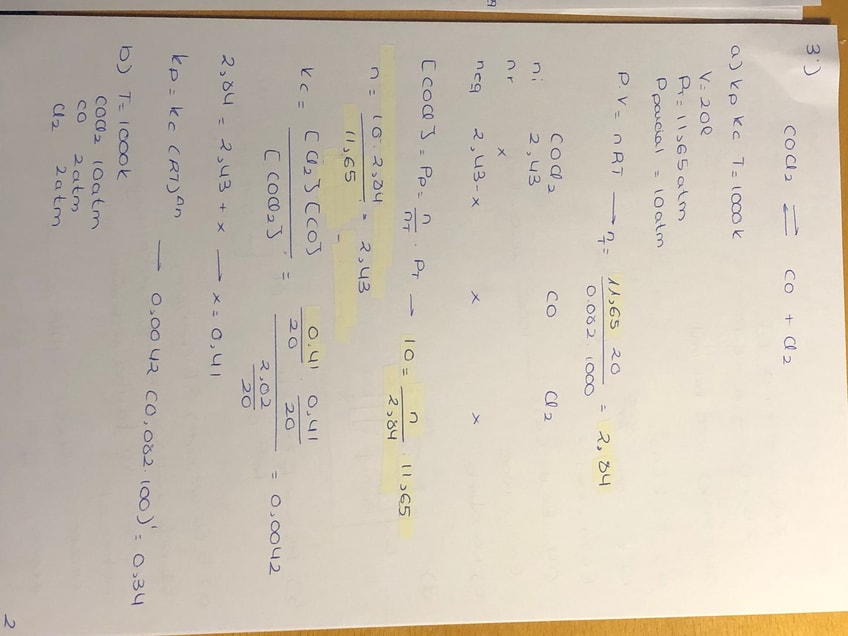 3.) COCl2 ⇌ CO + Cl2
a) kp kc T = 1000k
V = 20l
PT = 11,65atm
P parcial = 10atm
P.V = nRT → nT = 11,65 20 / 0.082 . 1000 = 2,84
COCl2 CO Cl2
ni 2,43
nr x
neq 2,43-x x x
[COCl] = Pp = n/nT . PT → 10 = n/2,84 . 11,65
n = 10 . 2,84 / 11,65 = 2,43
kc = [Cl2][CO] / [COCl2] = 0,41/20 . 0,41/20 / 2,02/20 = 0,0042
2,84 = 2,43 + x → x = 0,41
kp = kc (RT)^Δn → 0,0042 (0,082.100)^1 = 0,34
b) T = 1000k
COCl2 10atm
CO 2atm
Cl2 2atm
2